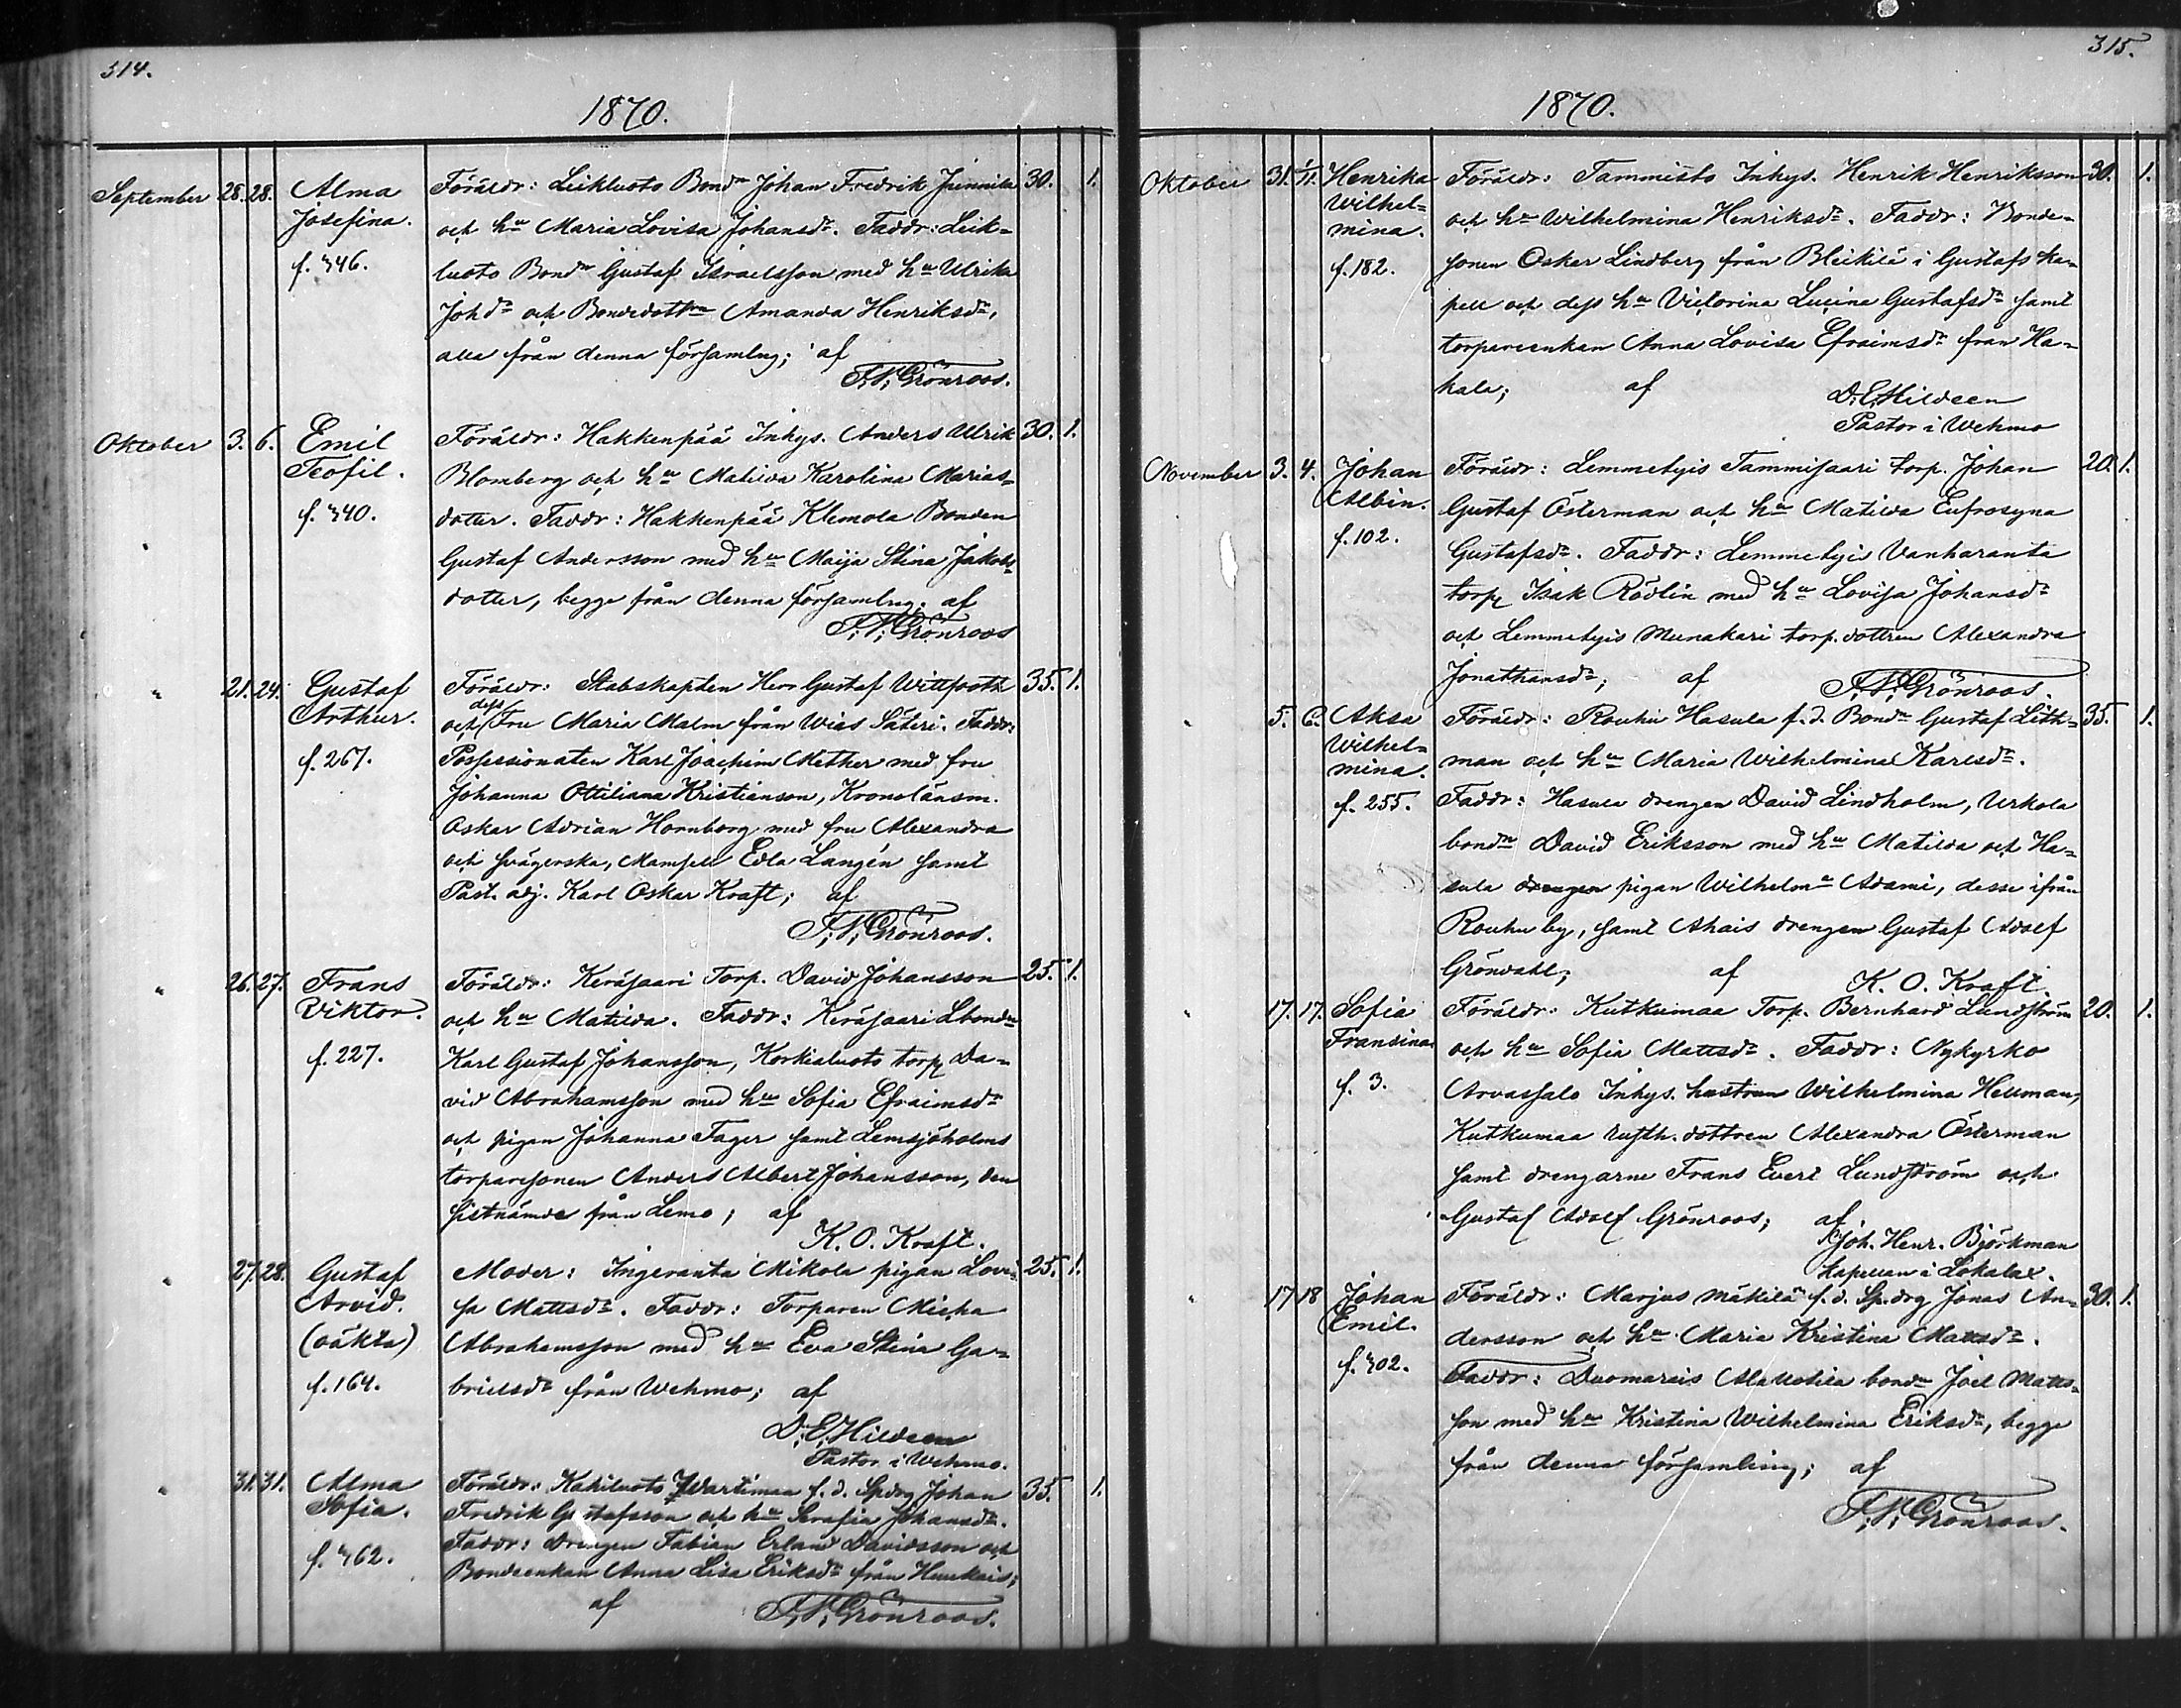 314.
1870.
September 28. 28. Alma Josefina. f. 346.
Föräldr: Leikluoto Bondn Johan Fredrik Junnila 30. 1.
och hu Maria Lovisa Johansdr. Faddr: Leik=
luoto Bondn Gustaf Israelsson med hu Ulrika
Johdr och Bondedottrn Amanda Henriksdr,
alla från denna församlng; af
F. N. Grönroos.
Oktober 3. 6. Emil Teofil. f. 340.
Föräldr: Hakkenpää Inhys. Anders Ulrik 30. 1.
Blomberg och hu Matilda Karolina Marias=
dotter. Faddr: Hakkenpää Klemola Bonden
Gustaf Andersson med hu Maija Stina Jakobs=
dotter, begge från denna församlng. af
F. N. Grönroos
" 21. 24. Gustaf Arthur. f. 267.
Föräldr: Stabskapten Herr Gustaf Wittfooth 35. 1.
och dess Fru Maria Malm från Wias Säteri. Faddr:
Possessionaten Karl Joachim Mether med fru
Johanna Ottiliana Kristianson, Kronolänsm.
Oskar Adrian Hornborg med fru Alexandra
och svägerska, Mamsell Edla Langén samt
Past. adj. Karl Oskar Kraft; af
F. N. Grönroos.
" 26. 27. Frans Viktor. f. 227.
Föräldr: Keräsaari Torp. David Johansson 25. 1.
och hu Matilda. Faddr: Keräsaari Lbondn
Karl Gustaf Johansson, Korkialuoto torp Da=
vid Abrahamsson med hu Sofia Efraimsdr
och pigan Johanna Fager samt Lemsjöholms
torparesonen Anders Albert Johansson, den
sistnämde från Lemo; af
K. O. Kraft.
" 27. 28. Gustaf Arvid. (oäkta) f. 164.
Moder: Ingeranta Mikola pigan Lovi= 25. 1.
sa Mattsdr. Faddr: Torparen Micha
Abrahamsson med hu Eva Stina Ga=
brielsdr från Wehmo; af
D. E. Hildeen
Pastor i Wehmo.
" 31. 31. Alma Sofia. f. 362.
Föräldr: Kahiluoto Ydartimaa f. d. Spdrg Johan 35. 1.
Fredrik Gustafsson och hu Serafia Johansdr.
Faddr: Drengen Fabian Erland Davidsson och
Bondeenkan Anna Lisa Eriksdr från
af F. N. Grönroos.
315.
1870.
Oktober 31. 1/11. Henrika Wilhel= mina. f. 182.
Föräldr: Tammisto Inhys. Henrik Henriksson 30. 1.
och hu Wilhelmina Henriksdr. Faddr: Bonde=
sonen Oskar Lindberg från Bleikilä i Gustafs ka=
pell och dess hu Victorina Lucina Gustafsdr samt
torpareenkan Anna Lovisa Efraimsdr från Ha=
kala; af
D. E. Hildeen
Pastor i Wehmo
November 3. 4. Johan Albin. f. 102.
Föräldr: Lemmetyis Tammisaari torp. Johan 20. 1.
Gustaf Österman och hu Matilda Eufrosyna
Gustafsdr. Faddr: Lemmetyis Vanharanta
torp Isak Rödlin med hu Lovisa Johansdr
och Lemmetyis Munakari torp. dottren Alexandra
Jonathansdr; af
F. N. Grönroos.
" 5. 6. Aksa Wilhel= mina. f. 255.
Föräldr: Rouhu Hasula f. d. Bondn Gustaf Lith= 35. 1.
man och hu Maria Wilhelmina Karlsdr.
Faddr: Hasula drengen David Lindholm, Urkola
bondn David Eriksson med hu Matilda och Ha=
sula drengen pigan Wilhelma Adami, desse ifrån
Rouhu by, samt Ahais drengen Gustaf Adolf
Gröndahl; af
K. O. Kraft.
" 17. 17. Sofia Fransina. f. 3.
Föräldr: Kutkumaa Torp. Bernhard Lundström 20. 1.
och hu Sofia Mattsdr. Faddr: Nykyrko
Arvassalo Inhys. hustrun Wilhelmina Hellman,
Kutkumaa rusth. dottren Alexandra Österman
samt drengarne Frans Evert Lundström och
Gustaf Adolf Grönroos; af
Joh. Henr. Björkman
Kapellan i Lokalax.
" 17 18 Johan Emil. f. 302.
Föräldr: Marjus Mäkilä f. d. Sp.drg Jonas An= 30. 1.
dersson och hu Maria Kristina Mattsdr.
Faddr: Duomarais bondn Joel Matts=
son med hu Kristina Wilhelmina Eriksdr, begge
från denna församling; af
F. N. Grönroos.